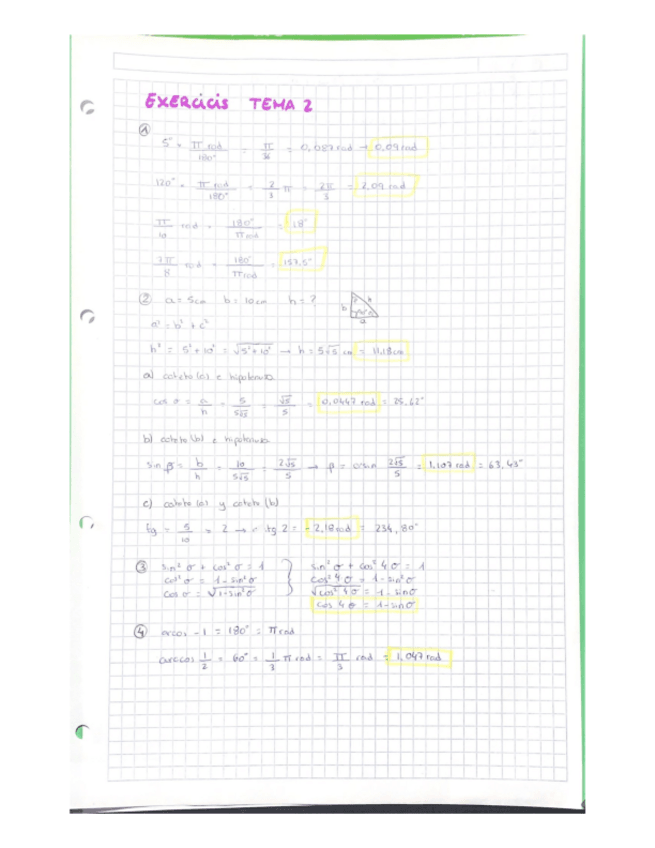 EXERCICIS TEMA 2
①
5° · π rad / 180° = π / 36 = 0,087 rad → 0,09 rad
120° · π rad / 180° = 2/3 π = 2π/3 = 2,09 rad
π/10 rad · 180° / π rad = 18°
7π/8 rad · 180° / π rad = 157,5°
② a = 5cm b = 10cm h = ?
b h a
a² = b² + c²
h² = 5² + 10² = √5²+10² → h = 5√5 cm = 11,18cm
a) cateto (a) e hipotenusa
cos σ = a/h = 5/5√5 = √5/5 = 0,0447 rad =
b) cateto (b) e hipotenusa
sin β = b/h = 10/5√5 = 2√5/5 → β = 2√5/5 = 1,107 rad = 63,43°
c) cateto (a) y cateto (b)
tg = 5/10 = 2 → tg 2 = - 2,18 rad = 234,80°
③ sin² σ + cos² σ = 1 sin² σ + cos² 4 σ = 1
cos² σ = 1 - sin² σ cos² 4 σ = 1 - sin² σ
cos σ = √1-sin² σ √cos² 4 σ = 1 - sin σ
cos 4 σ = 1 - sin σ
④ arcos -1 = 180° = π rad
arccos 1/2 = 60° = 1/3 π rad = π/3 rad = 1,047 rad